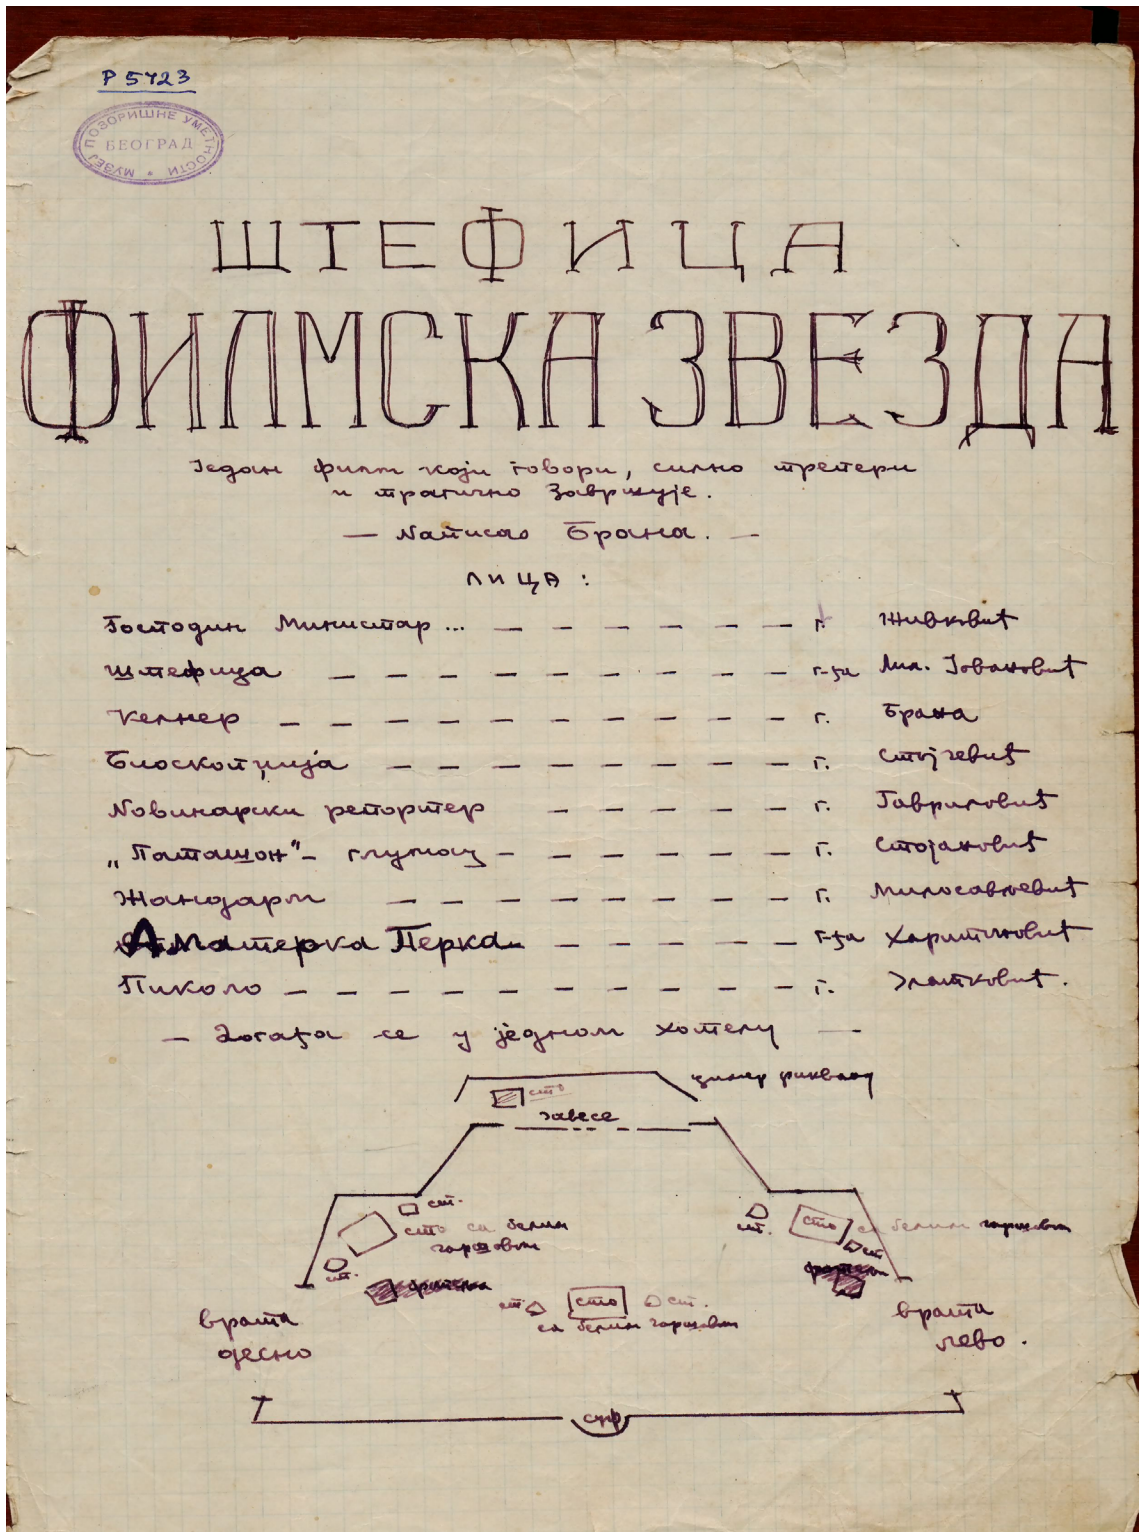 Р 5723
МУЗЕЈ ПОЗОРИШНЕ УМЕТНОСТИ
БЕОГРАД
ШТЕФИЦА
ФИЛМСКА ЗВЕЗДА
Један филм који говори, силно трепери
и трагично завршује.
— Написао Брана. —
ЛИЦА :
Господин Министар ... — — — — — — — г. Живковић
Штефица — — — — — — — — — г-ђа Мил. Јовановић
Келнер — — — — — — — — — — г. Брана
Биоскопџија — — — — — — — — г. Стојчевић
Новинарски репортер — — — — — г. Гавриловић
„Паташон“ — глумац — — — — — — г. Стојановић
Жандарм — — — — — — — — г. Милосављевић
Аматерка Перка — — — — — г-ђа Харитоновић
Пиколо — — — — — — — — — — г. Златковић.
— Догађа се у једном хотелу —
цимер
сто
завесе
ст.
сто са белим
чаршавом
ст.
ст.
сто са белим чаршавом
ст.
ст. сто ст.
са белим чаршавом
врата
десно
врата
лево.
суф